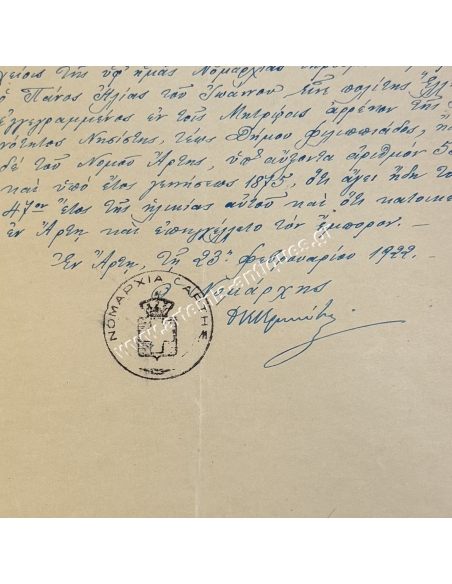 τῆς ὑφ' ἡμᾶς Νομαρχίας
ὁ Πάνος Ἠλίας τοῦ Ἰωάννου εἶνε πολίτης Ἕλλ
ἐγγεγραμμένος ἐν τοῖς Μητρῴοις ἀρρένων τῆς
νότητος Νησίστης, τέως Δήμου Φιλιππιάδος,
δὲ τοῦ Νομοῦ Ἄρτης, ὑπ' αὔξοντα ἀριθμὸν 55
καὶ ὑπὸ ἔτος γεννήσεως 1875, ὅτι ἄγει ἤδη τὸ
47ον ἔτος τῆς ἡλικίας αὐτοῦ καὶ ὅτι κατοικε
ἐν Ἄρτῃ καὶ ἐπηγγέλλετο τὸν ἔμπορον.—
Ἐν Ἄρτῃ τῇ 23ῃ Φεβρουαρίου 1922.—
Ὁ Νομάρχης
ΝΟΜΑΡΧΙΑ ΑΡΤΗΣ